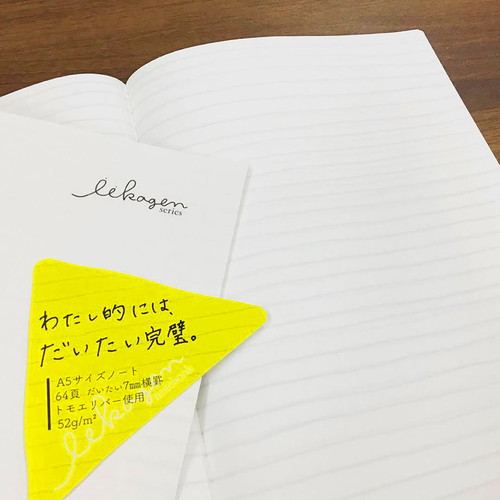 iikagen
series
わたし的には、
だいたい完璧。
A5サイズノート
64頁 だいたい7mm横罫
トモエリバー使用
52g/m²
iikagen
notebook